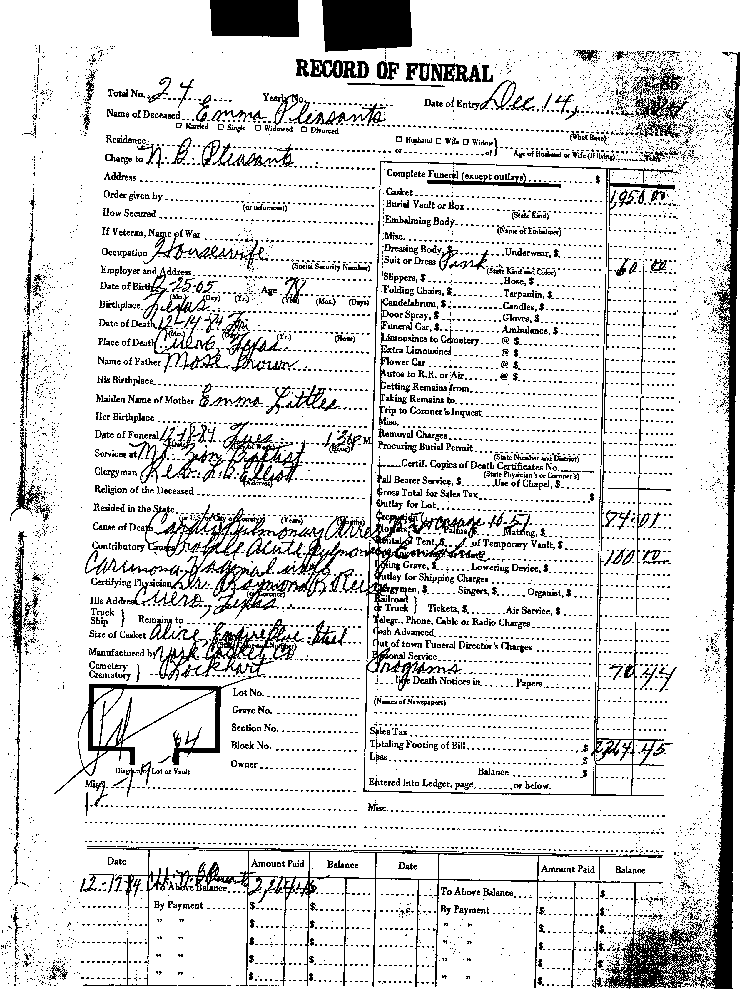 RECORD OF FUNERAL
Total No. 24 Yearly No. Date of Entry Dec 14,
Name of Deceased Emma Pleasants
☐ Married ☐ Single ☐ Widowed ☐ Divorced
Residence ☐ Husband ☐ Wife ☐ Widow or of Age of Husband or Wife (If living)
Charge to N. B. Pleasants
Complete Funeral (except outlays) $
Address
Casket 1,950 00
Order given by
Burial Vault or Box
How Secured
Embalming Body
If Veteran, Name of War
Misc.
Occupation Housewife
Dressing Body, $ Underwear, $
Suit or Dress Pink 60 00
Employer and Address (Social Security Number)
Slippers, $ Hose, $
Date of Birth -25-05 Age
Folding Chairs, $ Tarpaulin, $
Birthplace Texas
Candelabrum, $ Candles, $
Door Spray, $ Gloves, $
Date of Death 12-14-84 Fri
Funeral Car, $ Ambulance, $
Place of Death Cuero, Texas
Limousines to Cemetery @ $
Extra Limousines @ $
Name of Father Mose Brown
Flower Car @ $
Autos to R.R. or Air @ $
His Birthplace
Getting Remains from
Maiden Name of Mother Emma Littles
Taking Remains to
Trip to Coroner's Inquest
Her Birthplace
Misc.
Date of Funeral 12-18-84 Tues 1:30 P M.
Removal Charges
Procuring Burial Permit
(State Number and District)
Services at Mt. Zion Baptist
Certif. Copies of Death Certificates No.
(State Physician's or Coroner's)
Clergyman Rev. L. B. Elliot
Pall Bearer Service, $ Use of Chapel, $
Religion of the Deceased
Gross Total for Sales Tax $
Resided in the State
Outlay for Lot
Cause of Death Cardio Pulmonary Arrest
74.01
Contributory Causes Probable Acute Pulmonary Embolism
Rental of Tent, $ of Temporary Vault, $
Carcinoma
100 00
Lining Grave, $ Lowering Device, $
Certifying Physician Dr. Raymond B. Reese
Outlay for Shipping Charges
Clergymen, $ Singers, $ Organist, $
His Address Cuero, Texas
Railroad or Truck } Tickets, $ Air Service, $
Truck Ship } Remains to
Telegr., Phone, Cable or Radio Charges
Cash Advanced
Size of Casket Alice Empire Blue Steel
Out of town Funeral Director's Charges
Manufactured by York Casket Co
Personal Service
Cemetery Crematory } Lockhart
Programs 70.44
Death Notices in Papers
(Names of Newspapers)
Lot No.
Grave No.
Section No.
Sales Tax
Block No.
Totaling Footing of Bill $ 2,264.45
Less $
Owner
Balance $
Diagram of Lot or Vault
Misc.
Entered into Ledger, page or below.
Misc.
Date Amount Paid Balance Date Amount Paid Balance
12-17-84 To Above Balance $ 2,264.45 $ To Above Balance $
By Payment $ $ By Payment $ $
" " $ $ " " $ $
" " $ $ " " $ $
" " $ $ " " $ $
" " $ $ " " $ $